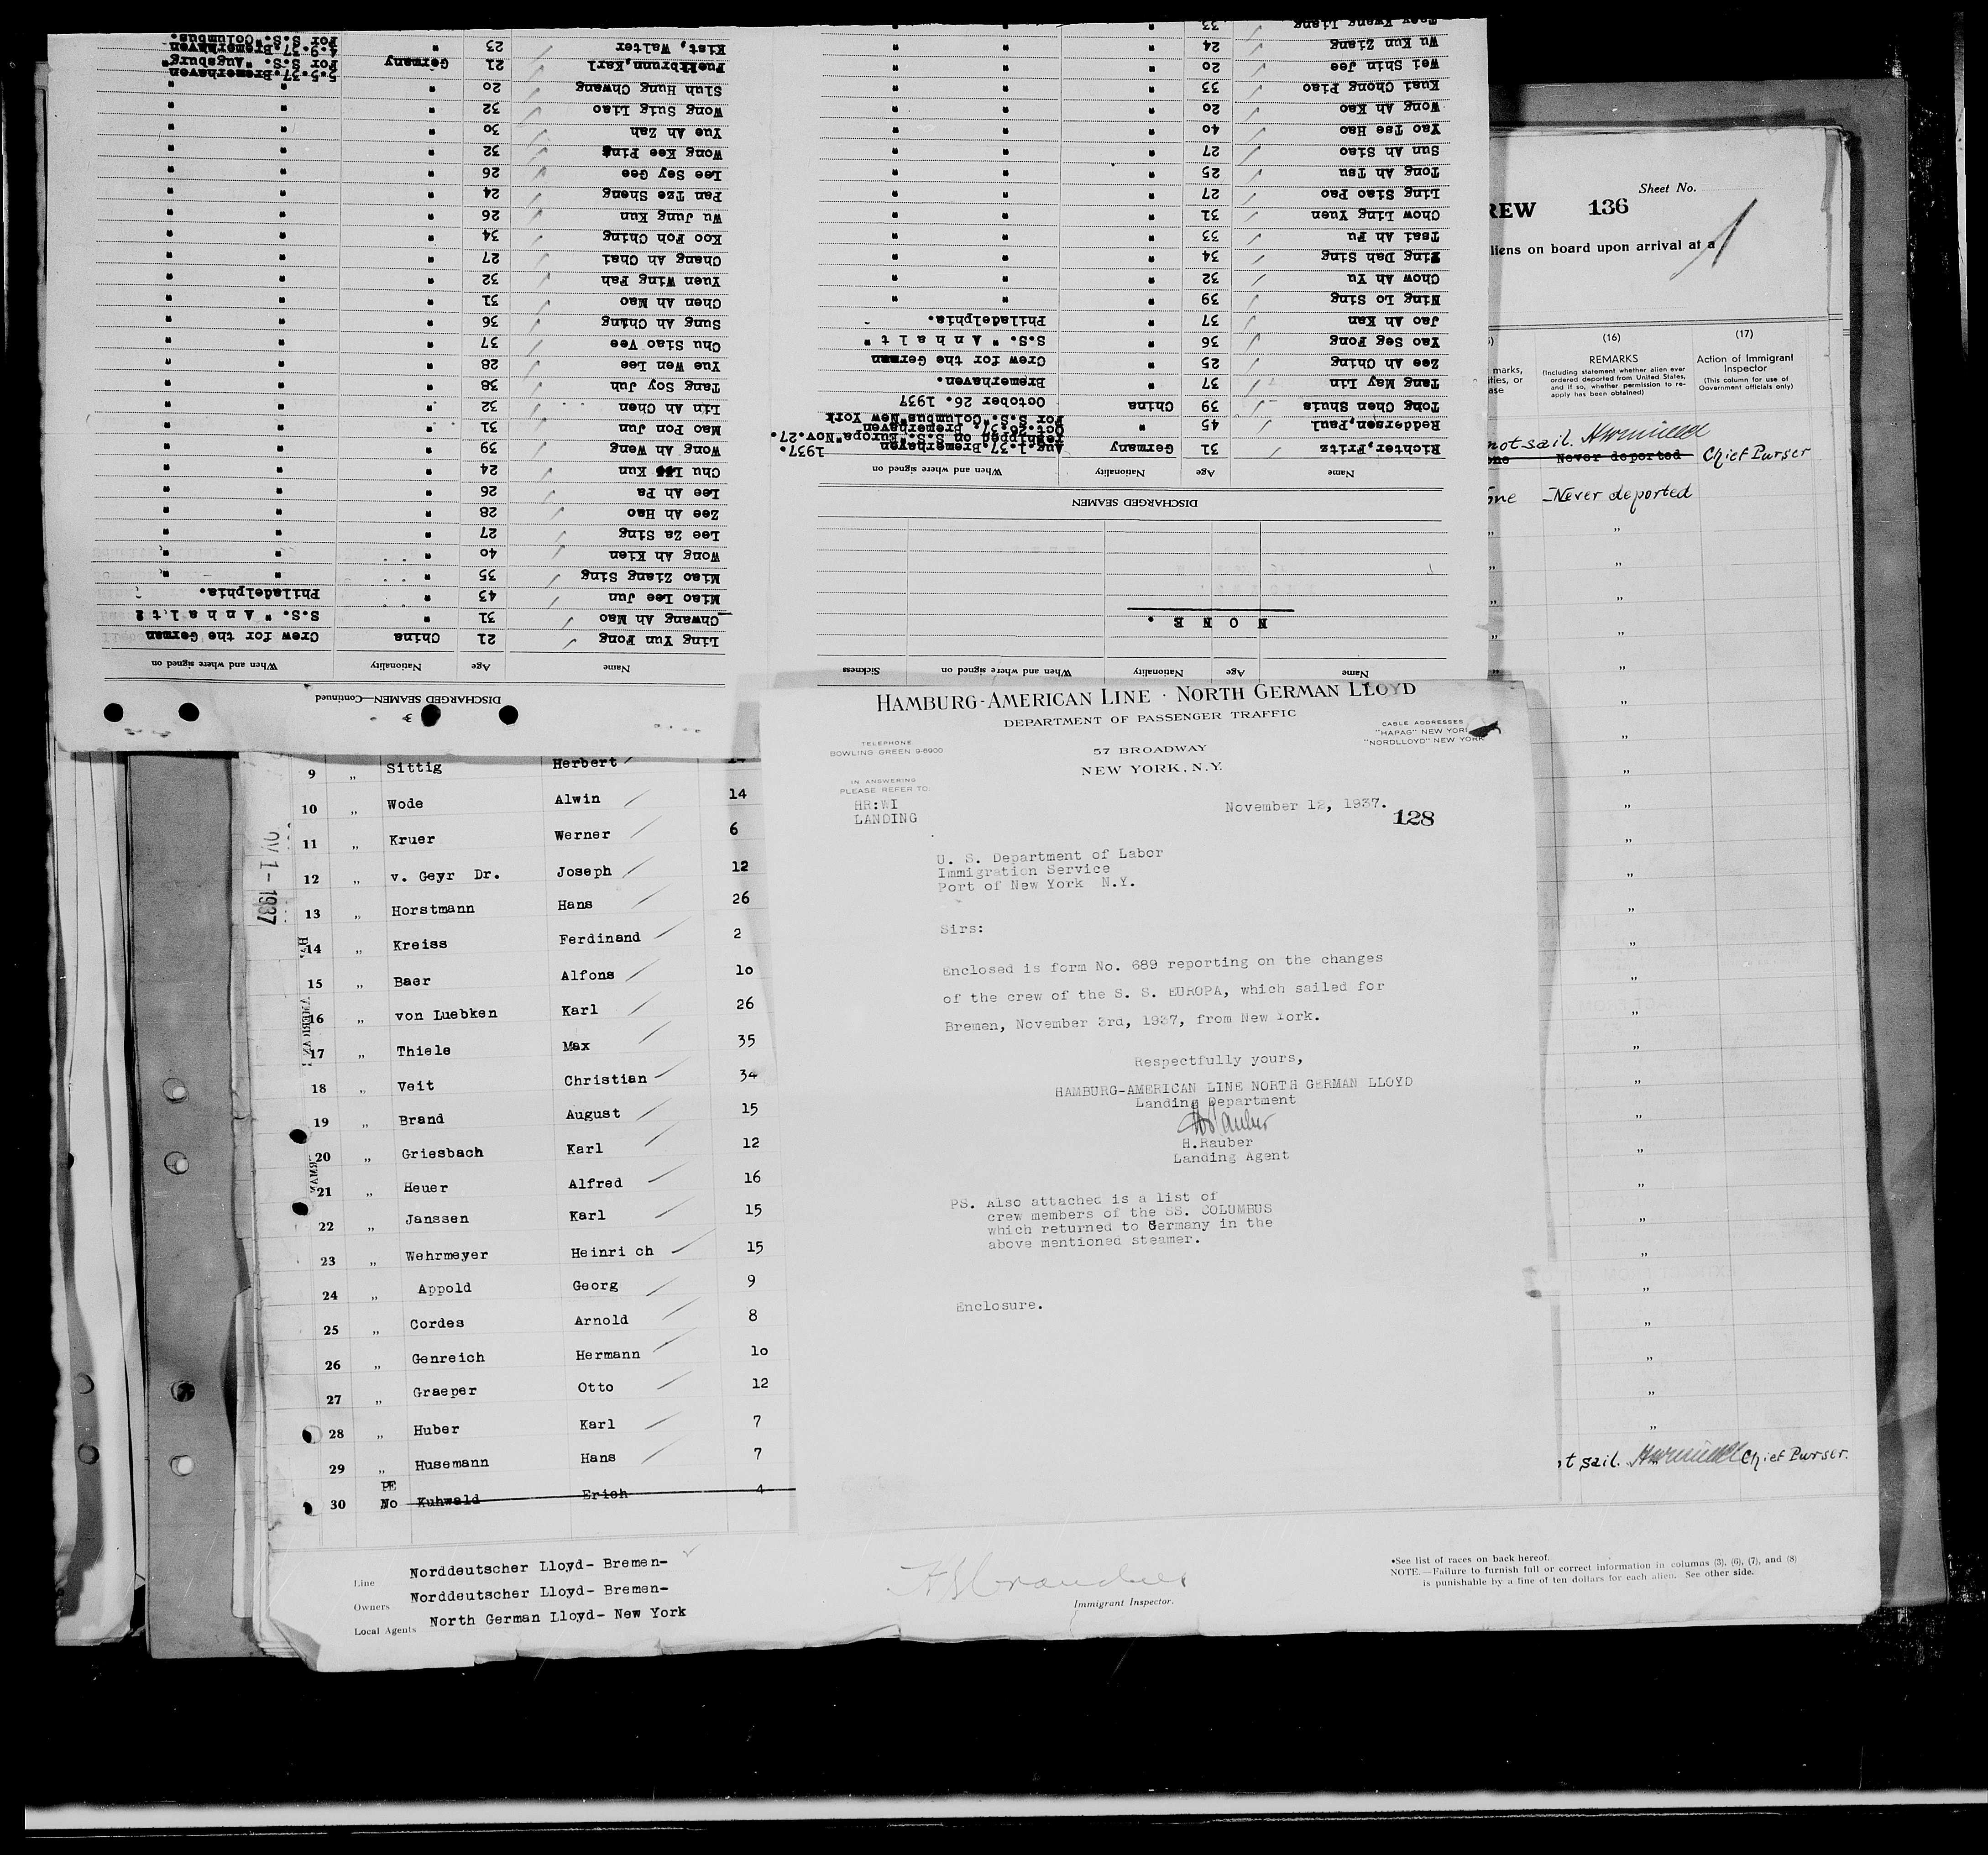 DISCHARGED SEAMEN—Continued
Name Age Nationality When and where signed on
Ling Yun Fong 21 China Crew for the German
Chwang Ah Mao 31 " S.S. " A n h a l t "
Miao Lee Jun 43 " Philadelphia.
Miao Ziang Sing 35 " " "
Wong Ah Kien 40 " " "
Lee Za Sing 27 " " "
Zee Ah Hao 28 " " "
Lee Ah Pa 26 " " "
Chu Kun 24 " " "
Wong Ah Weng 39 " " "
Mao Fon Jun 31 " " "
Lin Ah Chen 32 " " "
Tang Soy Juh 38 " " "
Yue Wen Lee 28 " " "
Chu Siao Vee 37 " " "
Sung Ah Ching 36 " " "
Chen Ah Mao 31 " " "
Yuen Wing Fah 32 " " "
Chang Ah Chai 27 " " "
Koo Foh Ching 34 " " "
Wu Jung Kun 26 " " "
Pan Tze Sheng 24 " " "
Lee Sey Gee 26 " " "
Wong Kee Ping 32 " " "
Yue Ah Zah 30 " " "
Wong Suig Liao 32 " " "
Siuh Hung Chwang 20 " " "
Karl 21 Germany 3.5.37.Bremerhaven
For S.S. "Augsburg"
Kist, Walter 23 " 4.9.37.Bremerhaven
For S.S."Columbus.
Name Age Nationality When and where signed on Sickness
N O N E .
DISCHARGED SEAMEN
Name Age Nationality When and where signed on
Richter,Fritz 31 Germany Aug.1.37.Bremerhaven 1937.
reshipped on S.S."Europa"Nov.27.
Reddersen,Paul 45 " Oct.26.37. Bremerhaven
For S.S."Columbus"New York
Tong Chen Shuis 39 China October 26. 1937
Tang May Lin 37 " Bremerhaven.
Zee Ah Ching 25 " Crew for the German
Yao Seg Fong 36 " S.S. " A n h a l t "
Jao Ah Kan 37 " Philadelphia.
Ning Lo Sing 39 " " "
Chow Ah Yu 32 " " "
Ping Dah Sing 34 " " "
Tsai Ah Fu 33 " " "
Chow Ling Yuen 31 " " "
Ling Siao Pao 27 " " "
Tong Ah Tsu 25 " " "
Sun Ah Siao 27 " " "
Yao Tse Hao 40 " " "
Wong Ah Kao 20 " " "
Kuai Chong Piao 33 " " "
Wei Shin Jee 20 " " "
Wu Kun Ziang 24 " " "
Kwang Liang 33 " " "
Sheet No.
REW 136
liens on board upon arrival at a
(16) (17)
marks,
ities, or
ase
REMARKS
(Including statement whether alien ever
ordered deported from United States,
and if so, whether permission to re-
apply has been obtained)
Action of Immigrant
Inspector
(This column for use of
Government officials only)
not sail.
one Never deported Chief Purser
one -Never deported
HAMBURG-AMERICAN LINE · NORTH GERMAN LLOYD
DEPARTMENT OF PASSENGER TRAFFIC
TELEPHONE
BOWLING GREEN 9-6900
CABLE ADDRESSES
"HAPAG" NEW YORK
"NORDLLOYD" NEW YORK
57 BROADWAY
NEW YORK, N.Y.
IN ANSWERING
PLEASE REFER TO:
HR:WI
LANDING
November 12, 1937.
128
U. S. Department of Labor
Immigration Service
Port of New York N.Y.
Sirs:
Enclosed is form No. 689 reporting on the changes
of the crew of the S. S. EUROPA, which sailed for
Bremen, November 3rd, 1937, from New York.
Respectfully yours,
HAMBURG-AMERICAN LINE NORTH GERMAN LLOYD
Landing Department
H.Rauber
Landing Agent
PS. Also attached is a list of
crew members of the SS. COLUMBUS
which returned to Germany in the
above mentioned steamer.
Enclosure.
9 ,, Sittig Herbert
10 ,, Wode Alwin 14
11 ,, Kruer Werner 6
12 ,, v. Geyr Dr. Joseph 12
13 ,, Horstmann Hans 26
14 ,, Kreiss Ferdinand 2
15 ,, Baer Alfons 10
16 ,, von Luebken Karl 26
17 ,, Thiele Max 35
18 ,, Veit Christian 34
19 ,, Brand August 15
20 ,, Griesbach Karl 12
21 ,, Heuer Alfred 16
22 ,, Janssen Karl 15
23 ,, Wehrmeyer Heinri ch 15
24 ,, Appold Georg 9
25 ,, Cordes Arnold 8
26 ,, Genreich Hermann 10
27 ,, Graeper Otto 12
28 ,, Huber Karl 7
29 ,, Husemann Hans 7
PE
30 No Kuhwald Erich 4
ot sail. Chief Purser.
Line Norddeutscher Lloyd- Bremen-
Owners Norddeutscher Lloyd- Bremen-
Local Agents North German Lloyd- New York
Immigrant Inspector.
*See list of races on back hereof.
NOTE.—Failure to furnish full or correct information in columns (3), (6), (7), and (8)
is punishable by a fine of ten dollars for each alien. See other side.